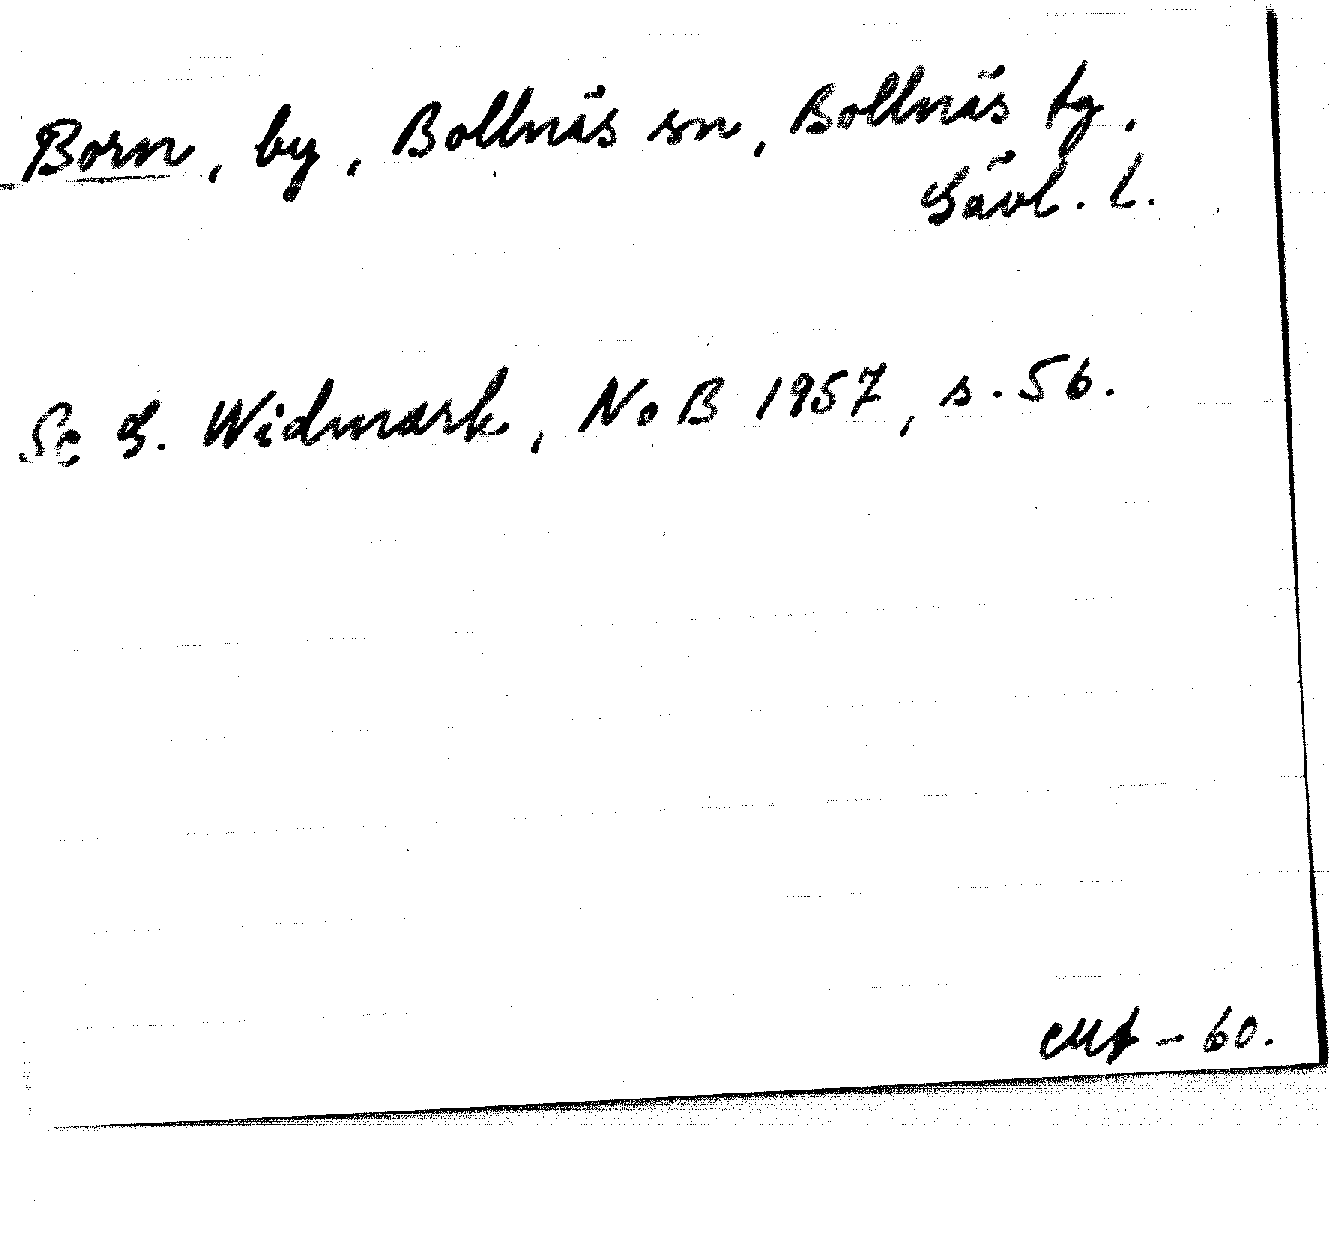 Born, by, Bollnäs sn, Bollnäs tg.
Gävl. l.
Se G. Widmark, NoB 1957, s. 56.
- 60.